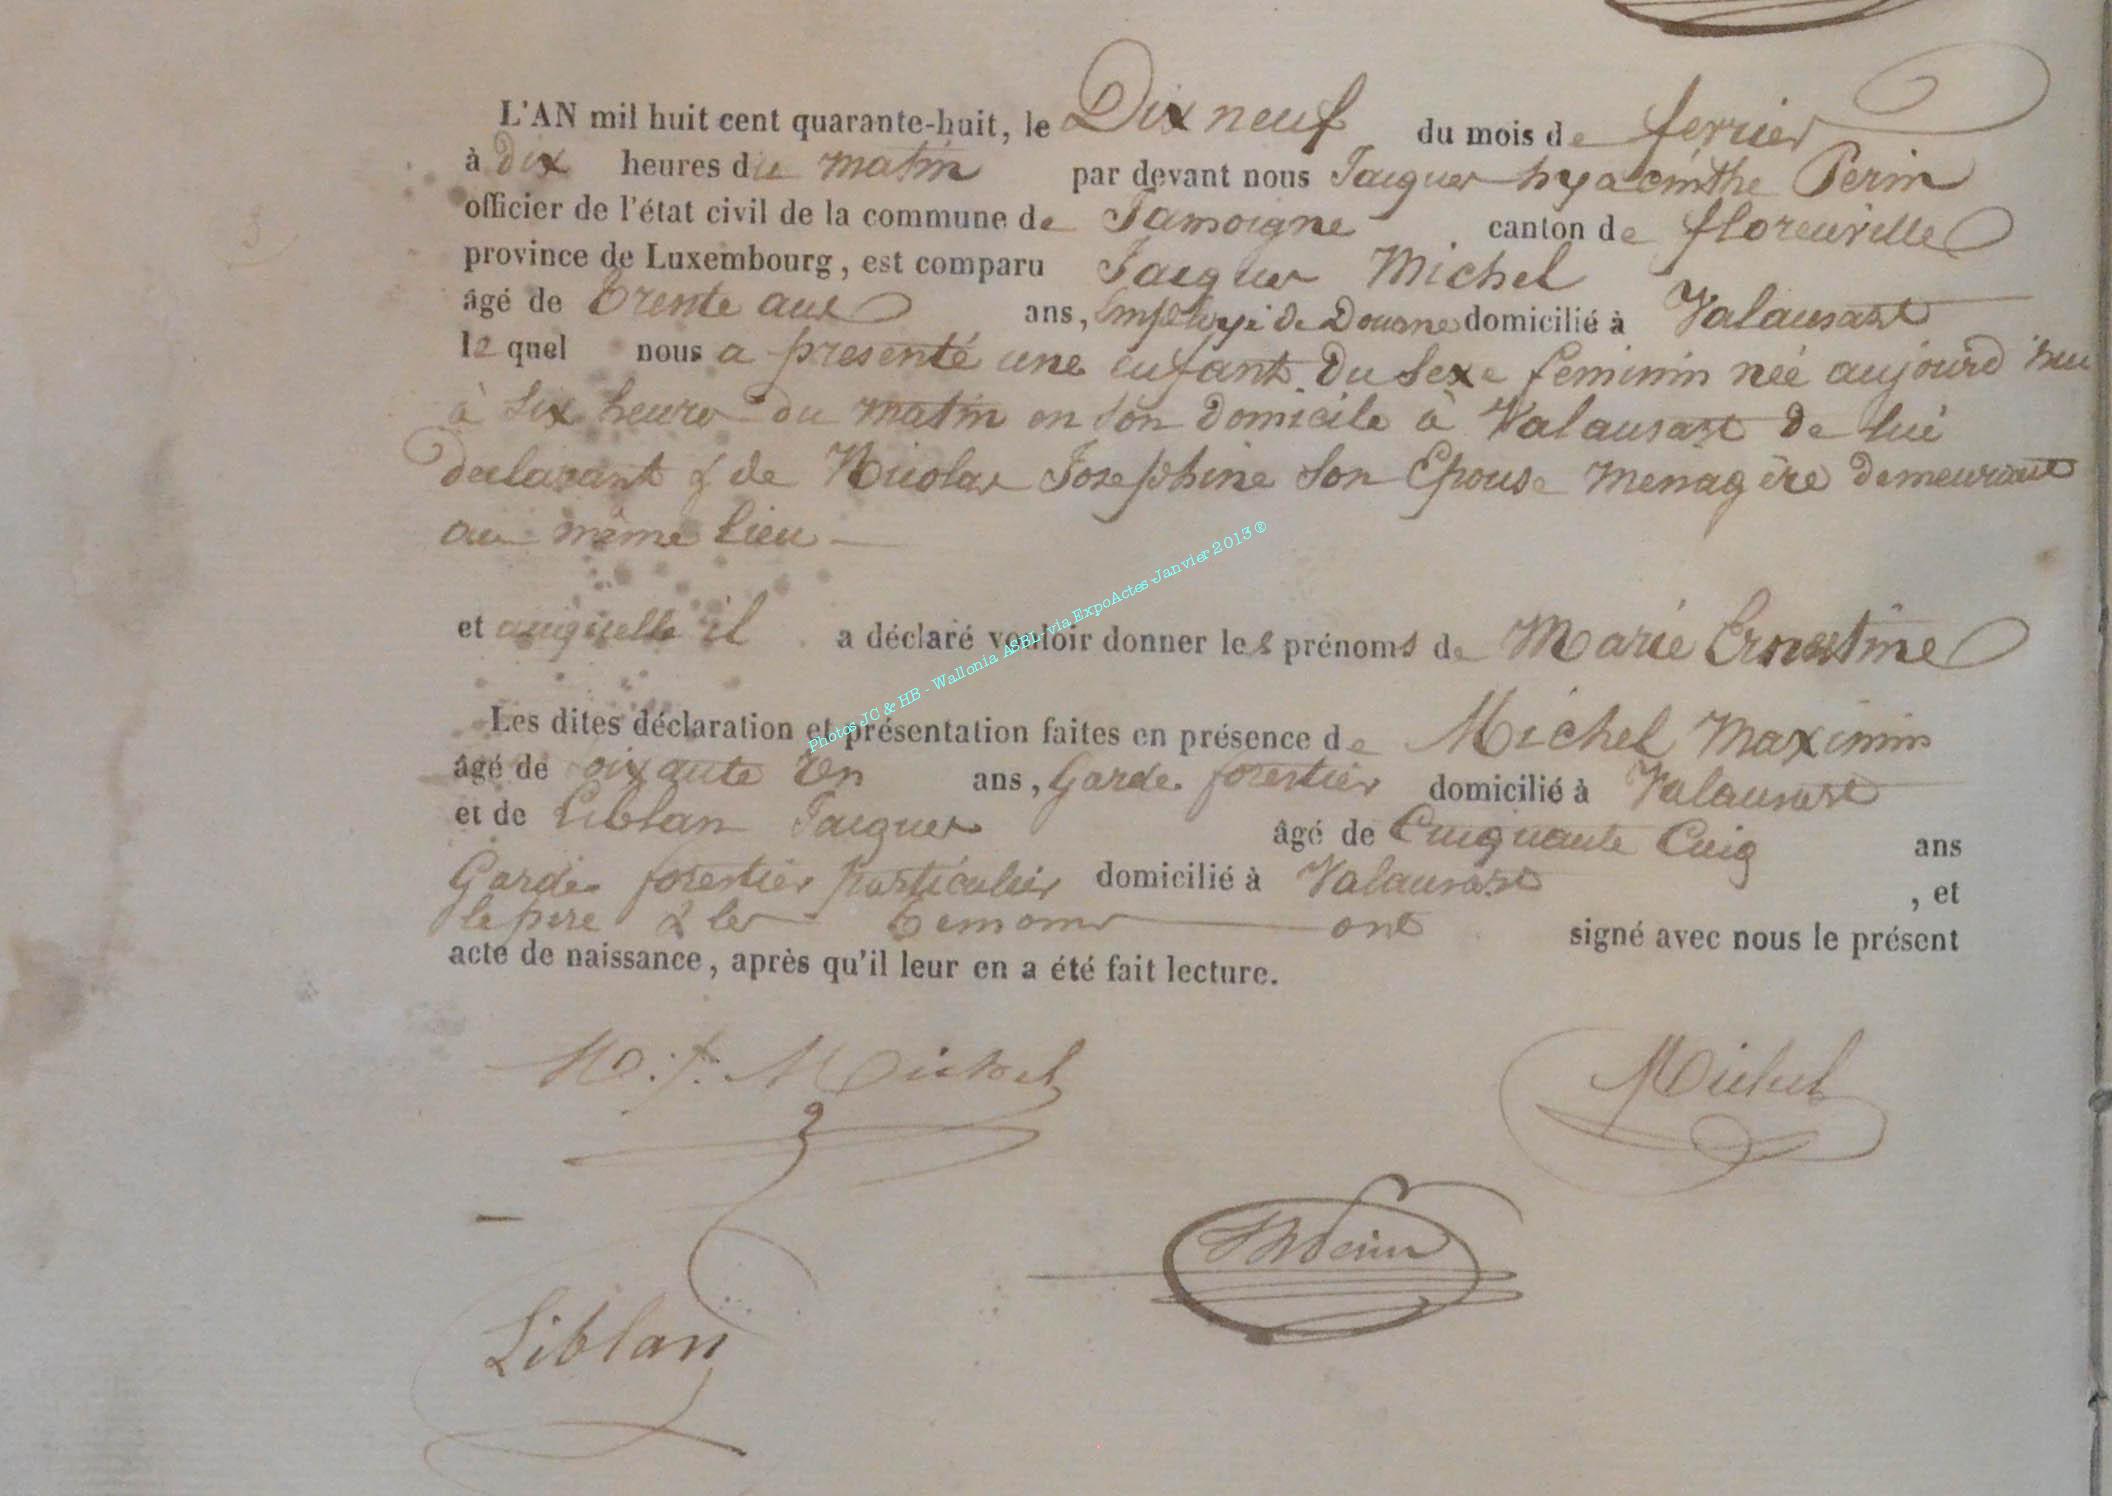 L'AN mil huit cent quarante-huit, le Dix neuf du mois de fevrier
à dix heures du matin par devant nous Jacques hyacinthe Perin
officier de l'état civil de la commune de Jamoigne canton de florenville
province de Luxembourg, est comparu Jacques Michel
âgé de trente aux ans, Employé de Douane domicilié à Valansart
lequel nous a presenté une enfant du sexe feminin née aujourd'hui
à six heures du matin en son domicile à Valansart de lui
declarant & de Nicolas Josephine son Epouse menagère demeurant
au même lieu
et auquelle il a déclaré vouloir donner les prénoms de Marie Ernestine
Les dites déclaration et présentation faites en présence de Michel Maximin
âgé de soixante un ans, Garde forestier domicilié à Valansart
et de Liblan Jacques âgé de Cinquante Cinq ans
Garde forestier particulier domicilié à Valansart , et
le pere & les temoins ont signé avec nous le présent
acte de naissance, après qu'il leur en a été fait lecture.
Photos JC & HB - Wallonia ASBL - via ExpoActes - Janvier 2013 ®
Michel
Michel
Perin
Liblan